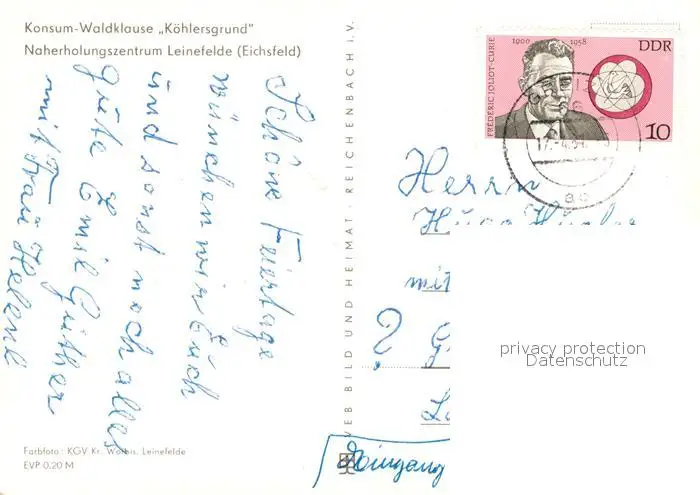 Konsum-Waldklause „Köhlersgrund"
Naherholungszentrum Leinefelde (Eichsfeld)
Schöne Feiertage
wünchen wir Euch
und sonst noch alles
gute Emil Güther
mit Frau Helene
Farbfoto: KGV Kr. Worbis, Leinefelde
EVP 0,20 M
VEB BILD UND HEIMAT · REICHENBACH i. V.
FRÉDÉRIC JOLIOT-CURIE
1900 1958
DDR
10
Herrn
mit
?
Eingang
privacy protection
Datenschutz